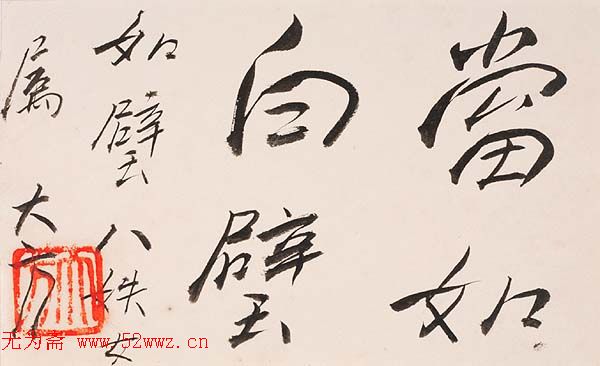 當如
白璧
如璧八
属 大方
无为斋 www.52wwz.cn